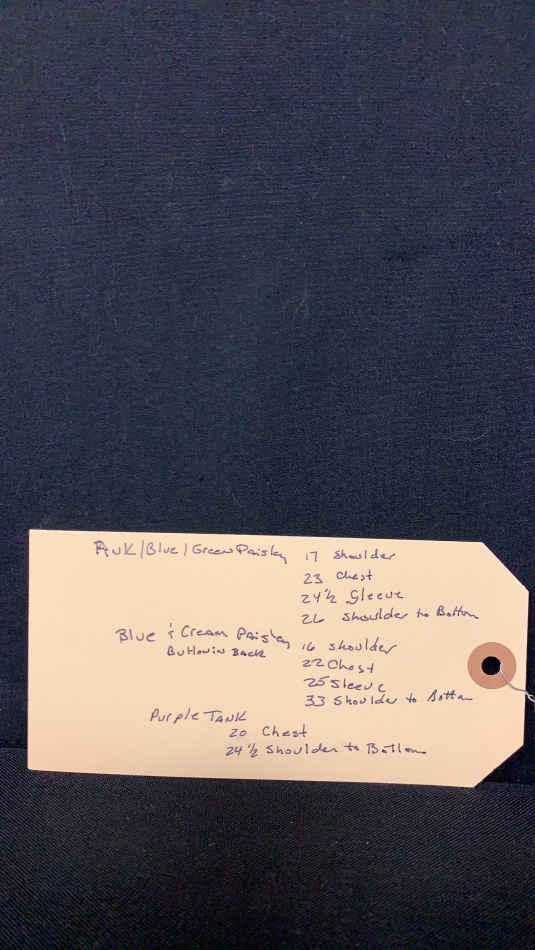 Pink/Blue/Green Paisley 17 Shoulder
23 Chest
24 1/2 Sleeve
26 Shoulder to Bottom
Blue & Cream Paisley 16 Shoulder
Button in Back 22 Chest
25 Sleeve
33 Shoulder to Bottom
Purple Tank
20 Chest
24 1/2 Shoulder to Bottom